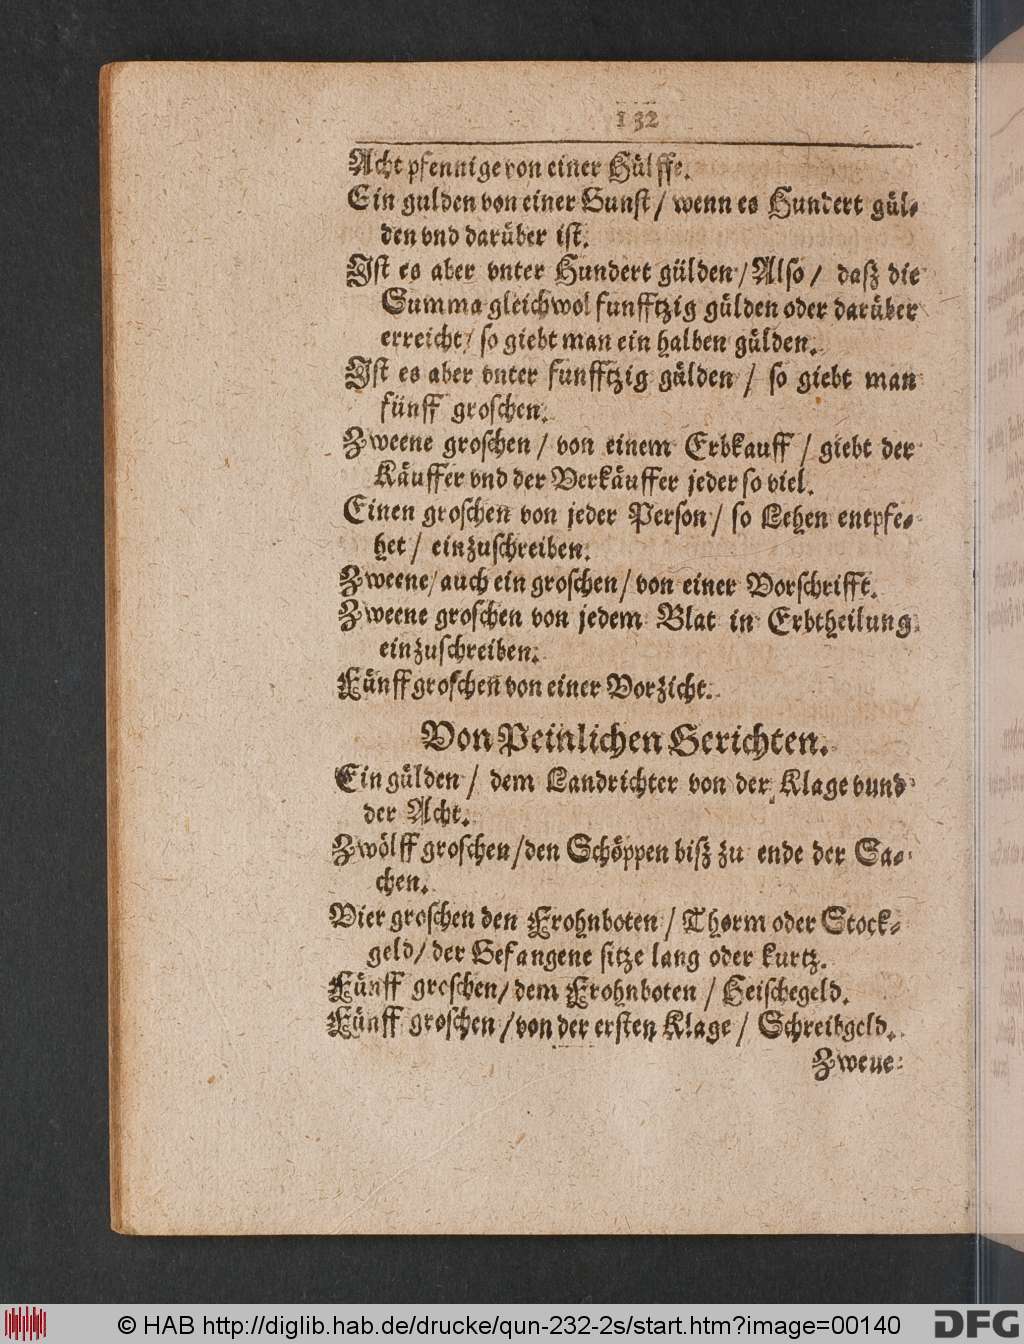 132
Acht pfennige von einer Hülffe.
Ein gulden von einer Gunst / wenn es Hundert gül-
den vnd darüber ist.
Ist es aber vnter Hundert gülden / Also / daß die
Summa gleichwol funfftzig gülden oder darüber
erreicht / so giebt man ein halben gülden.
Ist es aber vnter funfftzig gülden / so giebt man
fünff groschen.
Zweene groschen / von einem Erbkauff / giebt der
Käuffer vnd der Verkäuffer jeder so viel.
Einen groschen von jeder Person / so Lehen entpfe-
het / einzuschreiben.
Zweene / auch ein groschen / von einer Vorschrifft.
Zweene groschen von jedem Blat in Erbtheilung
einzuschreiben.
Fünff groschen von einer Vorzicht.
Von Peinlichen Gerichten.
Ein gülden / dem Landrichter von der Klage vund
der Acht.
Zwölff groschen / den Schöppen biß zu ende der Sa-
chen.
Vier groschen den Frohnboten / Thorm oder Stock-
geld / der Gefangene sitze lang oder kurtz.
Fünff groschen / dem Frohnboten / Heischegeld.
Fünff groschen / von der ersten Klage / Schreibgeld.
Zweue
© HAB http://diglib.hab.de/drucke/qun-232-2s/start.htm?image=00140
DFG